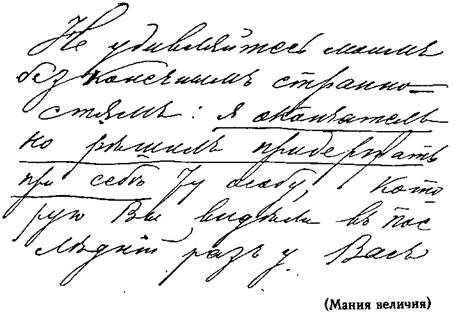 Не удивляйтесь моимъ
без конечнымъ странно-
стямъ: я окончатель
но рѣшилъ придержать
при себѣ ту особу, кото
рую Вы видѣли въ пос
лѣднiй разъ у Васъ
(Мания величия)